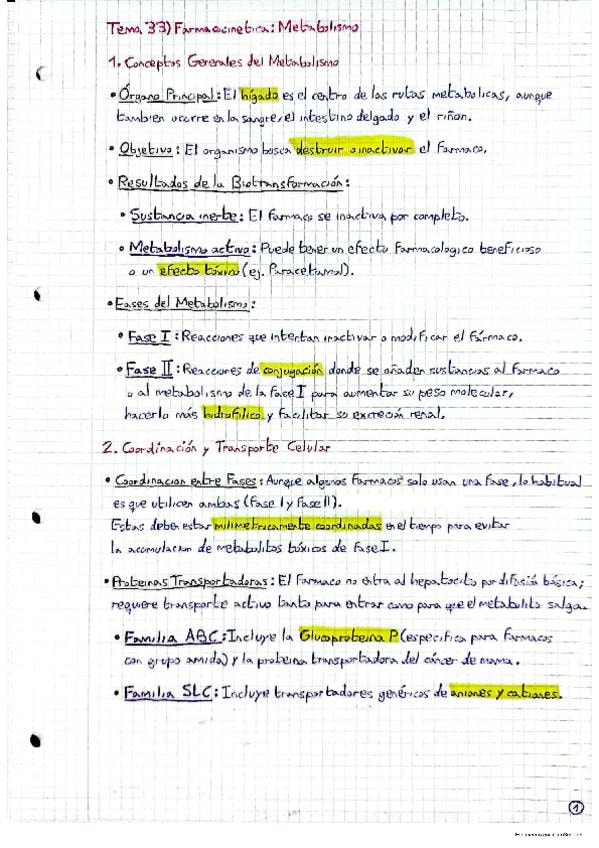 Tema 33) Farmacocinetica: Metabolismo
1. Conceptos Generales del Metabolismo
• Órgano Principal: El hígado es el centro de las rutas metabolicas, aunque
tambien ocurre en la sangre, el intestino delgado y el riñon.
• Objetivo: El organismo busca destruir o inactivar el farmaco.
• Resultados de la Biotransformación:
• Sustancia inerte: El farmaco se inactiva por completo.
• Metabolismo activo: Puede tener un efecto farmacologico beneficioso
o un efecto tóxico (ej. Paracetamol).
• Fases del Metabolismo:
• Fase I: Reacciones que intentan inactivar o modificar el fármaco.
• Fase II: Reacciones de conjugación donde se añaden sustancias al farmaco
o al metabolismo de la fase I para aumentar su peso molecular,
hacerlo más hidrofílico y facilitar su excreción renal.
2. Coordinación y Transporte Celular
• Coordinacion entre Fases: Aunque algunos farmacos solo usan una fase, lo habitual
es que utilicen ambas (Fase I y Fase II).
Estas deben estar milimetricamente coordinadas en el tiempo para evitar
la acumulacion de metabolitos tóxicos de fase I.
• Proteinas Transportadoras: El farmaco no entra al hepatocito por difusió básica;
requiere transporte activo tanto para entrar como para que el metabolito salga.
• Familia ABC: Incluye la Glucoproteina P (especifica para farmacos
con grupo amida) y la proteina transportadora del cáncer de mama.
• Familia SLC: Incluye transportadores genéricos de aniones y cationes.
1